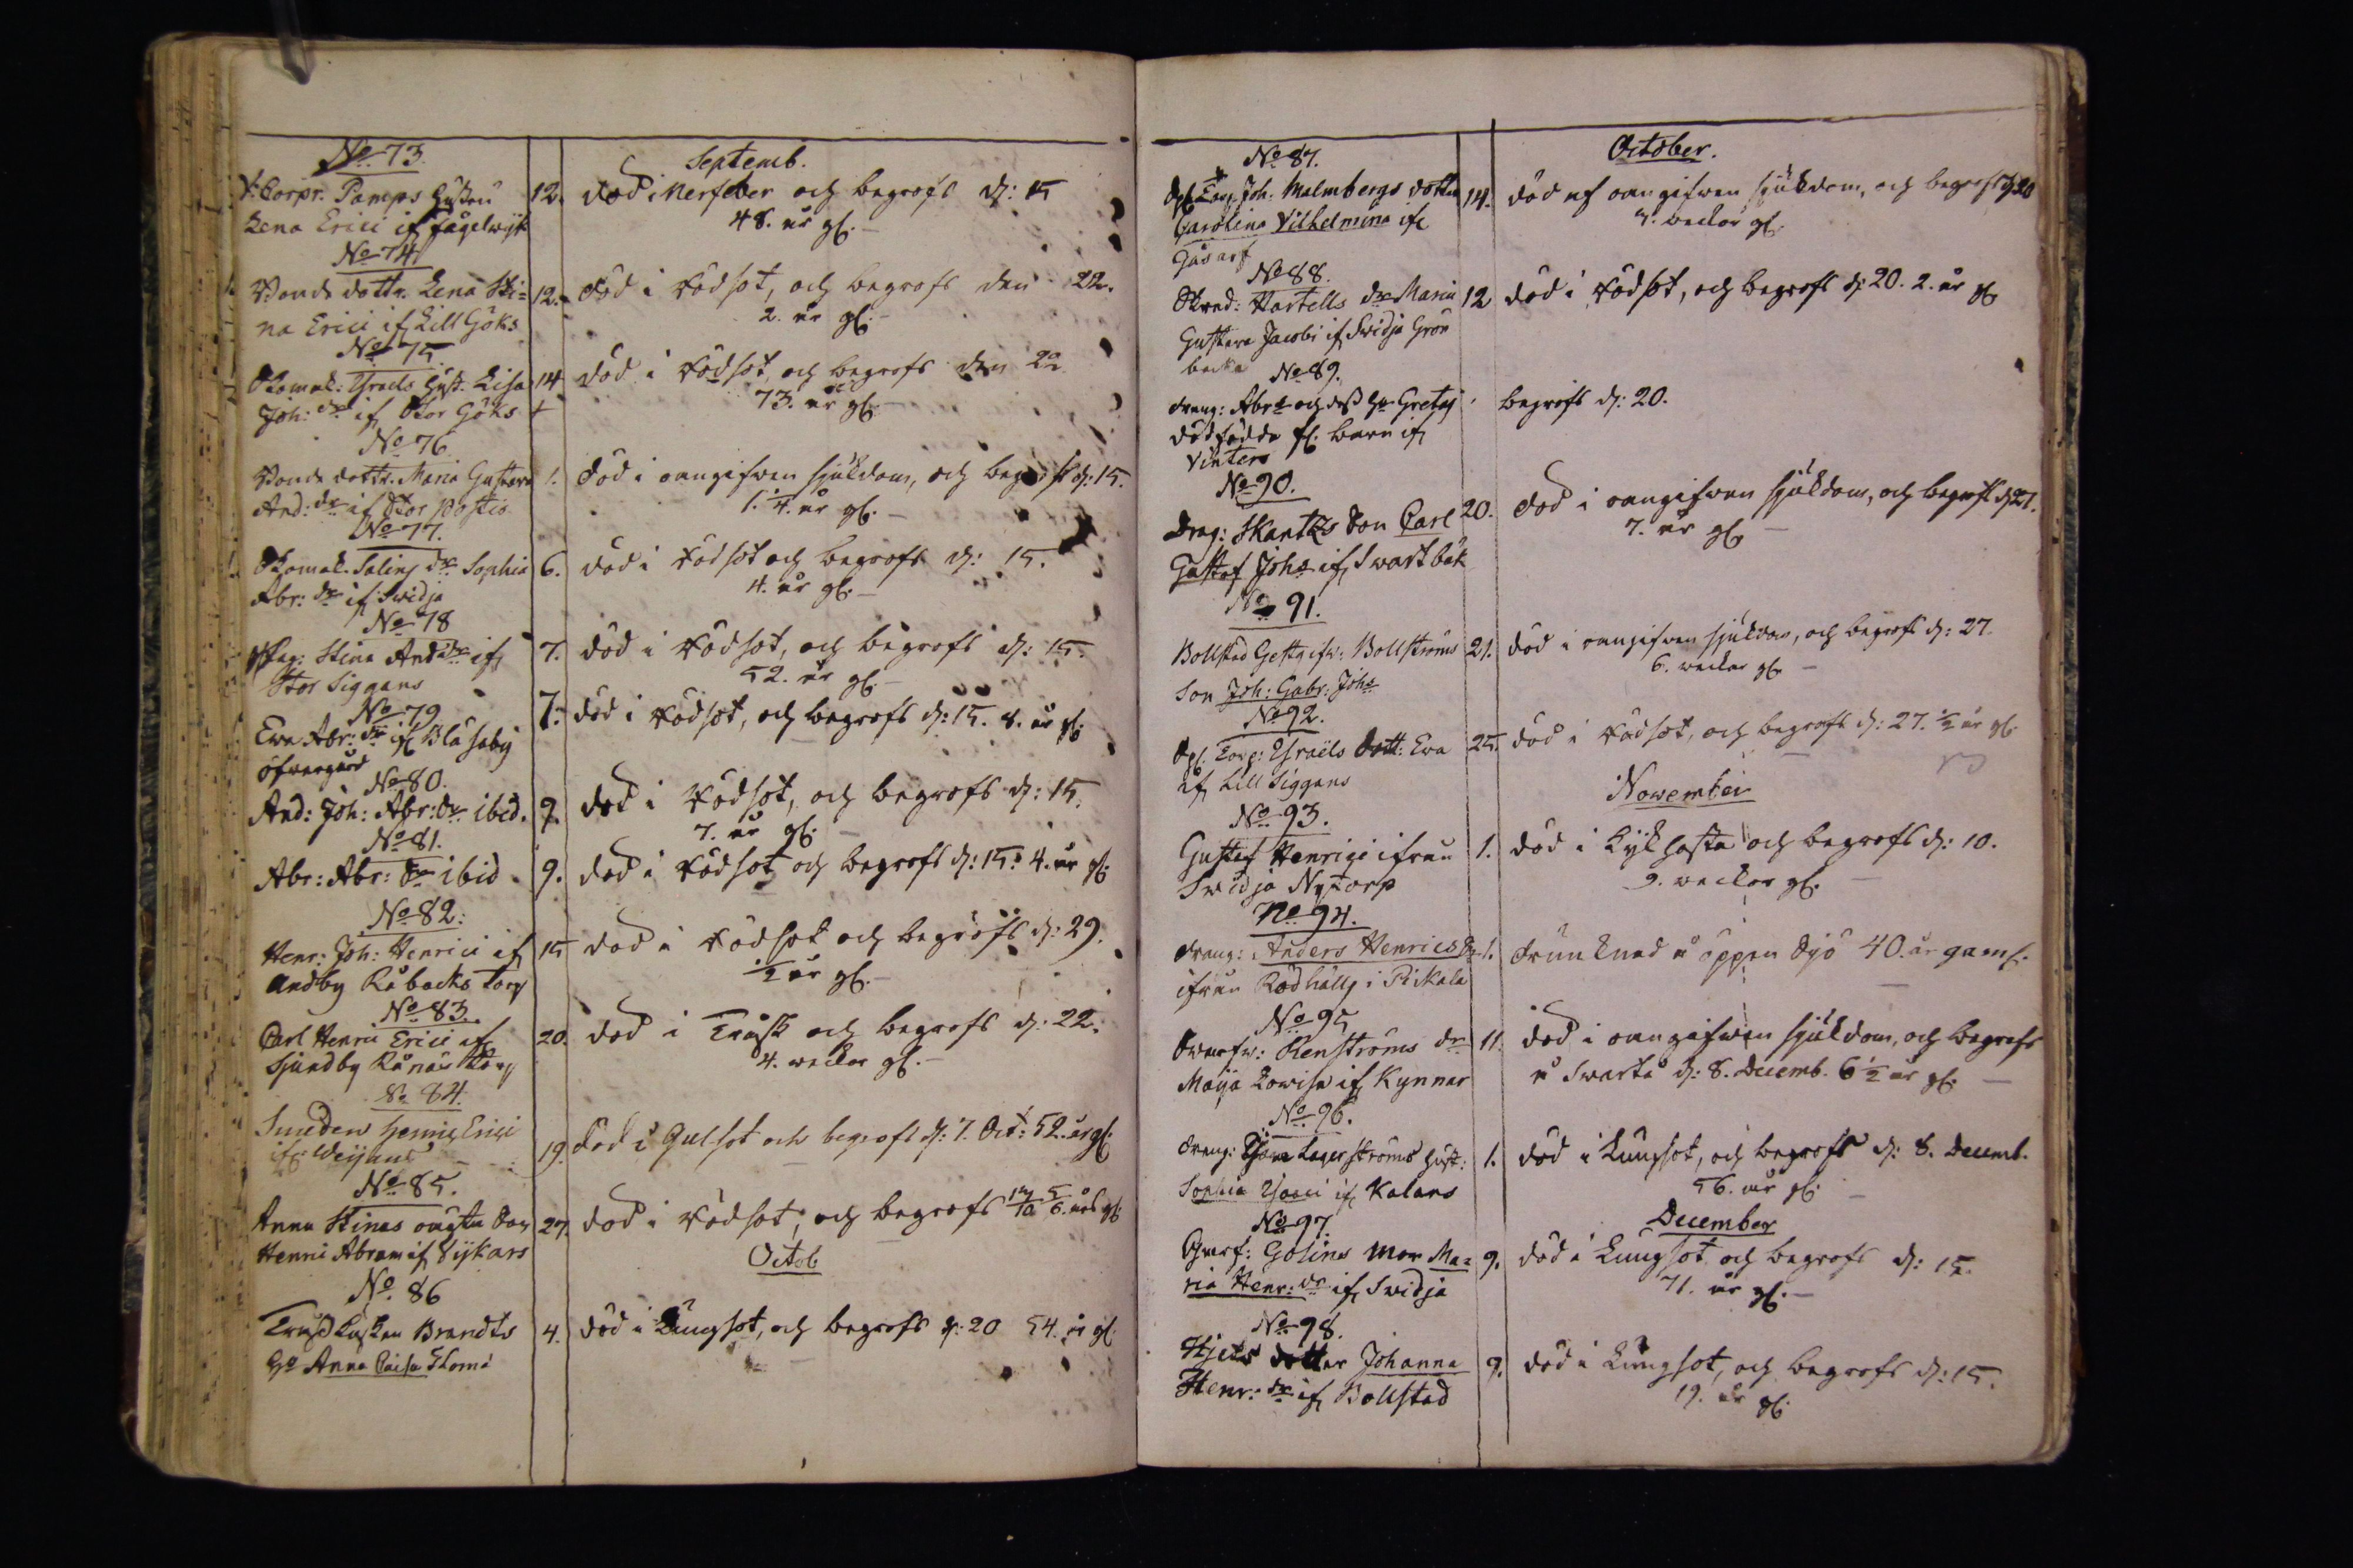 No 73.
Septemb.
V: Corpr. Pamps Hustru 12. död i Nerfeber och begrofs d: 15
Lena Erici if Fågelwijk 48. år gl.
No 74
Bonde dottr. Lena Sti= 12. död i Rödsot, och begrofs den 22.
na Erici if Lill Göks 2. år gl.
No 75.
Skomak: Israels Hust. Lisa 14 död i Rödsot, och begrofs den 22
Joh: dr if Stor Göks 73. år gl.
No 76
Bonde dottr. Maria Gustava 1. död i oangifwen sjukdom, och begrofs d: 15.
And: dr if Stor 1. 1/4. år gl.
No 77.
Skomak. Salins dr Sophia 6. död i Rödsot och begrofs d: 15.
Abr: dr if Swidja 4. år gl.
No 78
Pag: Stina And dr if 7. död i Rödsot, och begrofs d: 15.
Stor Siggans 52. år gl.
No 79
Ewa Abr: dr if Blåsaby 7. död i Rödsot, och begrofs d: 15. 8. år gl.
öfwergård
No 80.
And: Joh: Abr: dr ibid. 9. död i Rödsot, och begrofs d: 15.
7. år gl.
No 81.
Abr: Abr: ibid 9. död i Rödsot och begrofs d: 15. 4. år gl.
No 82:
Henr: Joh: Henrici if 15 död i Rödsot och begrofs d: 29.
Andby Råbacks Torp 1/2 år gl.
No 83.
Carl Henric Erici if 20. död i Tråsk och begrofs d: 22.
Sjundby Rånäs Torp 4. weckor gl.
No 84.
Smeden Henric Erici
if Weijans 19. död i Gulsot och begrofs d: 7. Oct: 52. år gl.
No 85.
Anna Stinas oägta Son 27. död i Rödsot, och begrofs 5/6. års gl.
Henric Abram if Sijkars
Octob
No. 86
Brandts 4. död i Lungsot, och begrofs d: 20 54. år gl.
Ho Anna Caisa Thomé
October.
No 87.
Joh. Malmbergs dotter 14. död af oangifwen sjukdom, och begrofs d: 20
Carolina Vilhelmina if 7. weckor gl.
Gåsarf
No 88.
Skred: Hartells dr Maria 12 död i Rödsot, och begrofs d: 20. 2. år gl.
Gustava Jacobi if Swidja Grön
backa
No 89.
dreng: Abr och dess Ho Gretas begrofs d: 20.
dödfödda barn if
Vinters
No 90.
Drag: Skantzs Son Carl 20. död i oangifwen sjukdom, och begrofs d: 27.
Gustaf Johs if Swartbäk 7. år gl.
No 91.
Bollstad Gestgifw: Bollströms 21. död i oangifwen sjukdom, och begrofs d: 27.
Son Joh: Gabr: Johs 6. weckor gl.
No 92.
Israels dott: Ewa 25. död i Rödsot, och begrofs d: 27. 1/2 år gl.
if Lill Siggans
November
No 93.
Gustaf Henrici ifrån 1. död i Kikhosta och begrofs d: 10.
Swidja Nytorp 9. weckor gl.
No 94.
dreng: Anders Henrics 1. drunknad i öppen Sjö 40. år gaml.
ifrån Rödhäll i Pikala
No 95
Renströms dr 11. död i oangifwen sjukdom, och begrofs
Maja Lowisa if Kynnar i Swartå d: 8. Decemb. 6 1/2 år gl.
No 96.
dreng: Lagerströms Hust: 1. död i Lungsot, och begrofs d: 8. Decemb.
Sophia Isaci if Kalans 56. år gl.
December
No 97.
Golins Mor Ma= 9. död i Lungsot och begrofs d: 15.
ria Henr: dr if Swidja 71. år gl.
No 98.
Hjelts dotter Johanna 9. död i Lungsot, och begrofs d: 15.
Henr: dr if Bollstad 19. år gl.